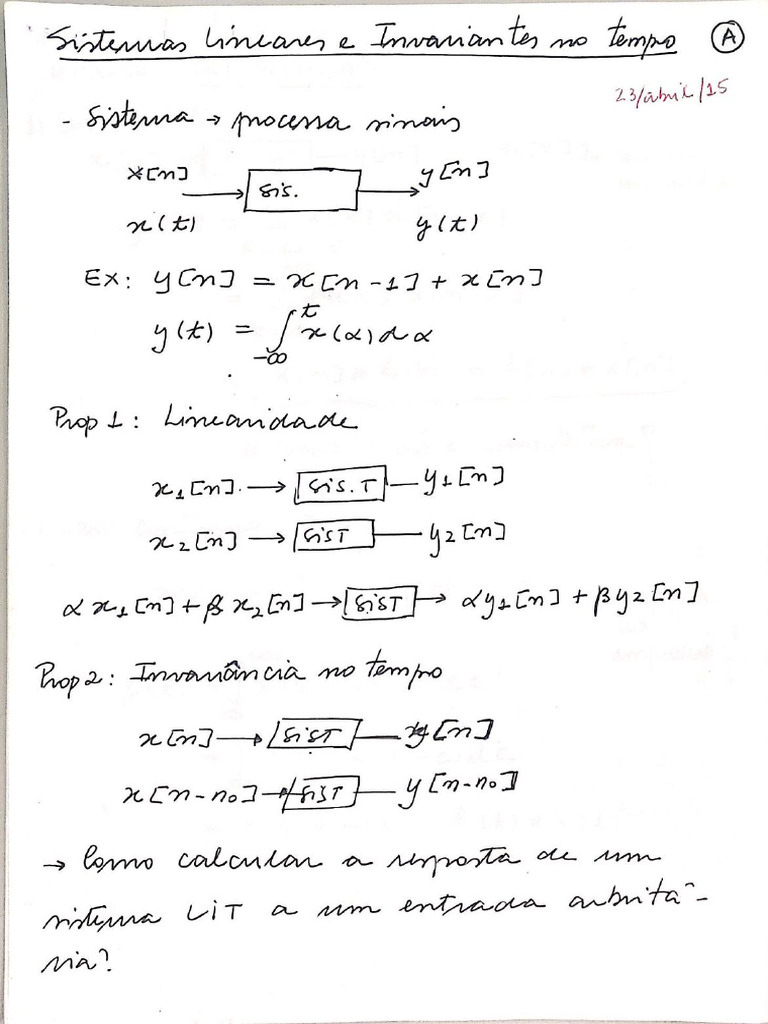 Sistemas Lineares e Invariantes no tempo (A)
23/abril/15
- Sistema → processa sinais
x[n] → sis. → y[n]
x(t) y(t)
Ex: y[n] = x[n-1] + x[n]
y(t) = ∫_{-∞}^{t} x(α)dα
Prop 1: Linearidade
x₁[n] → sis.T — y₁[n]
x₂[n] → sisT — y₂[n]
αx₁[n] + βx₂[n] → sisT → αy₁[n] + βy₂[n]
Prop 2: Invariância no tempo
x[n] → sisT — y[n]
x[n-n₀] → sisT — y[n-n₀]
→ Como calcular a resposta de um
sistema LiT a um entrada arbitrá-
ria?